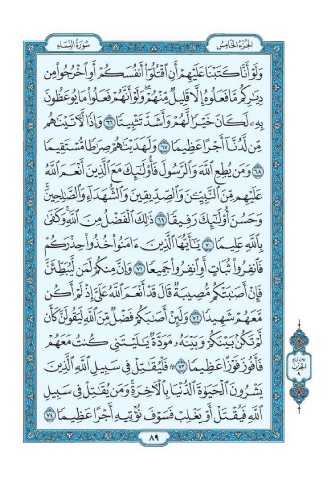 الجزء الخامس
سورة النساء
وَلَوْ أَنَّا كَتَبْنَا عَلَيْهِمْ أَنِ اقْتُلُوا أَنْفُسَكُمْ أَوِ اخْرُجُوا مِن
دِيَٰرِكُم مَّا فَعَلُوهُ إِلَّا قَلِيلٌ مِّنْهُمْ وَلَوْ أَنَّهُمْ فَعَلُوا مَا يُوعَظُونَ
بِهِۦ لَكَانَ خَيْرًا لَّهُمْ وَأَشَدَّ تَثْبِيتًا ٦٦ وَإِذًا لَّآتَيْنَٰهُم
مِّن لَّدُنَّا أَجْرًا عَظِيمًا ٦٧ وَلَهَدَيْنَٰهُمْ صِرَٰطًا مُّسْتَقِيمًا
٦٨ وَمَن يُطِعِ اللَّهَ وَالرَّسُولَ فَأُولَٰئِكَ مَعَ الَّذِينَ أَنْعَمَ اللَّهُ
عَلَيْهِم مِّنَ النَّبِيِّنَ وَالصِّدِّيقِينَ وَالشُّهَدَاءِ وَالصَّٰلِحِينَ
وَحَسُنَ أُولَٰئِكَ رَفِيقًا ٦٩ ذَٰلِكَ الْفَضْلُ مِنَ اللَّهِ وَكَفَىٰ
بِاللَّهِ عَلِيمًا ٧٠ يَٰأَيُّهَا الَّذِينَ ءَامَنُوا خُذُوا حِذْرَكُمْ
فَانفِرُوا ثُبَاتٍ أَوِ انفِرُوا جَمِيعًا ٧١ وَإِنَّ مِنكُمْ لَمَن لَّيُبَطِّئَنَّ
فَإِنْ أَصَٰبَتْكُم مُّصِيبَةٌ قَالَ قَدْ أَنْعَمَ اللَّهُ عَلَيَّ إِذْ لَمْ أَكُن
مَّعَهُمْ شَهِيدًا ٧٢ وَلَئِنْ أَصَٰبَكُمْ فَضْلٌ مِّنَ اللَّهِ لَيَقُولَنَّ كَأَن
لَّمْ تَكُن بَيْنَكُمْ وَبَيْنَهُۥ مَوَدَّةٌ يَٰلَيْتَنِي كُنتُ مَعَهُمْ
فَأَفُوزَ فَوْزًا عَظِيمًا ٧٣ ۞ فَلْيُقَٰتِلْ فِي سَبِيلِ اللَّهِ الَّذِينَ
يَشْرُونَ الْحَيَوٰةَ الدُّنْيَا بِالْءَاخِرَةِ وَمَن يُقَٰتِلْ فِي سَبِيلِ
اللَّهِ فَيُقْتَلْ أَوْ يَغْلِبْ فَسَوْفَ نُؤْتِيهِ أَجْرًا عَظِيمًا ٧٤
٨٩